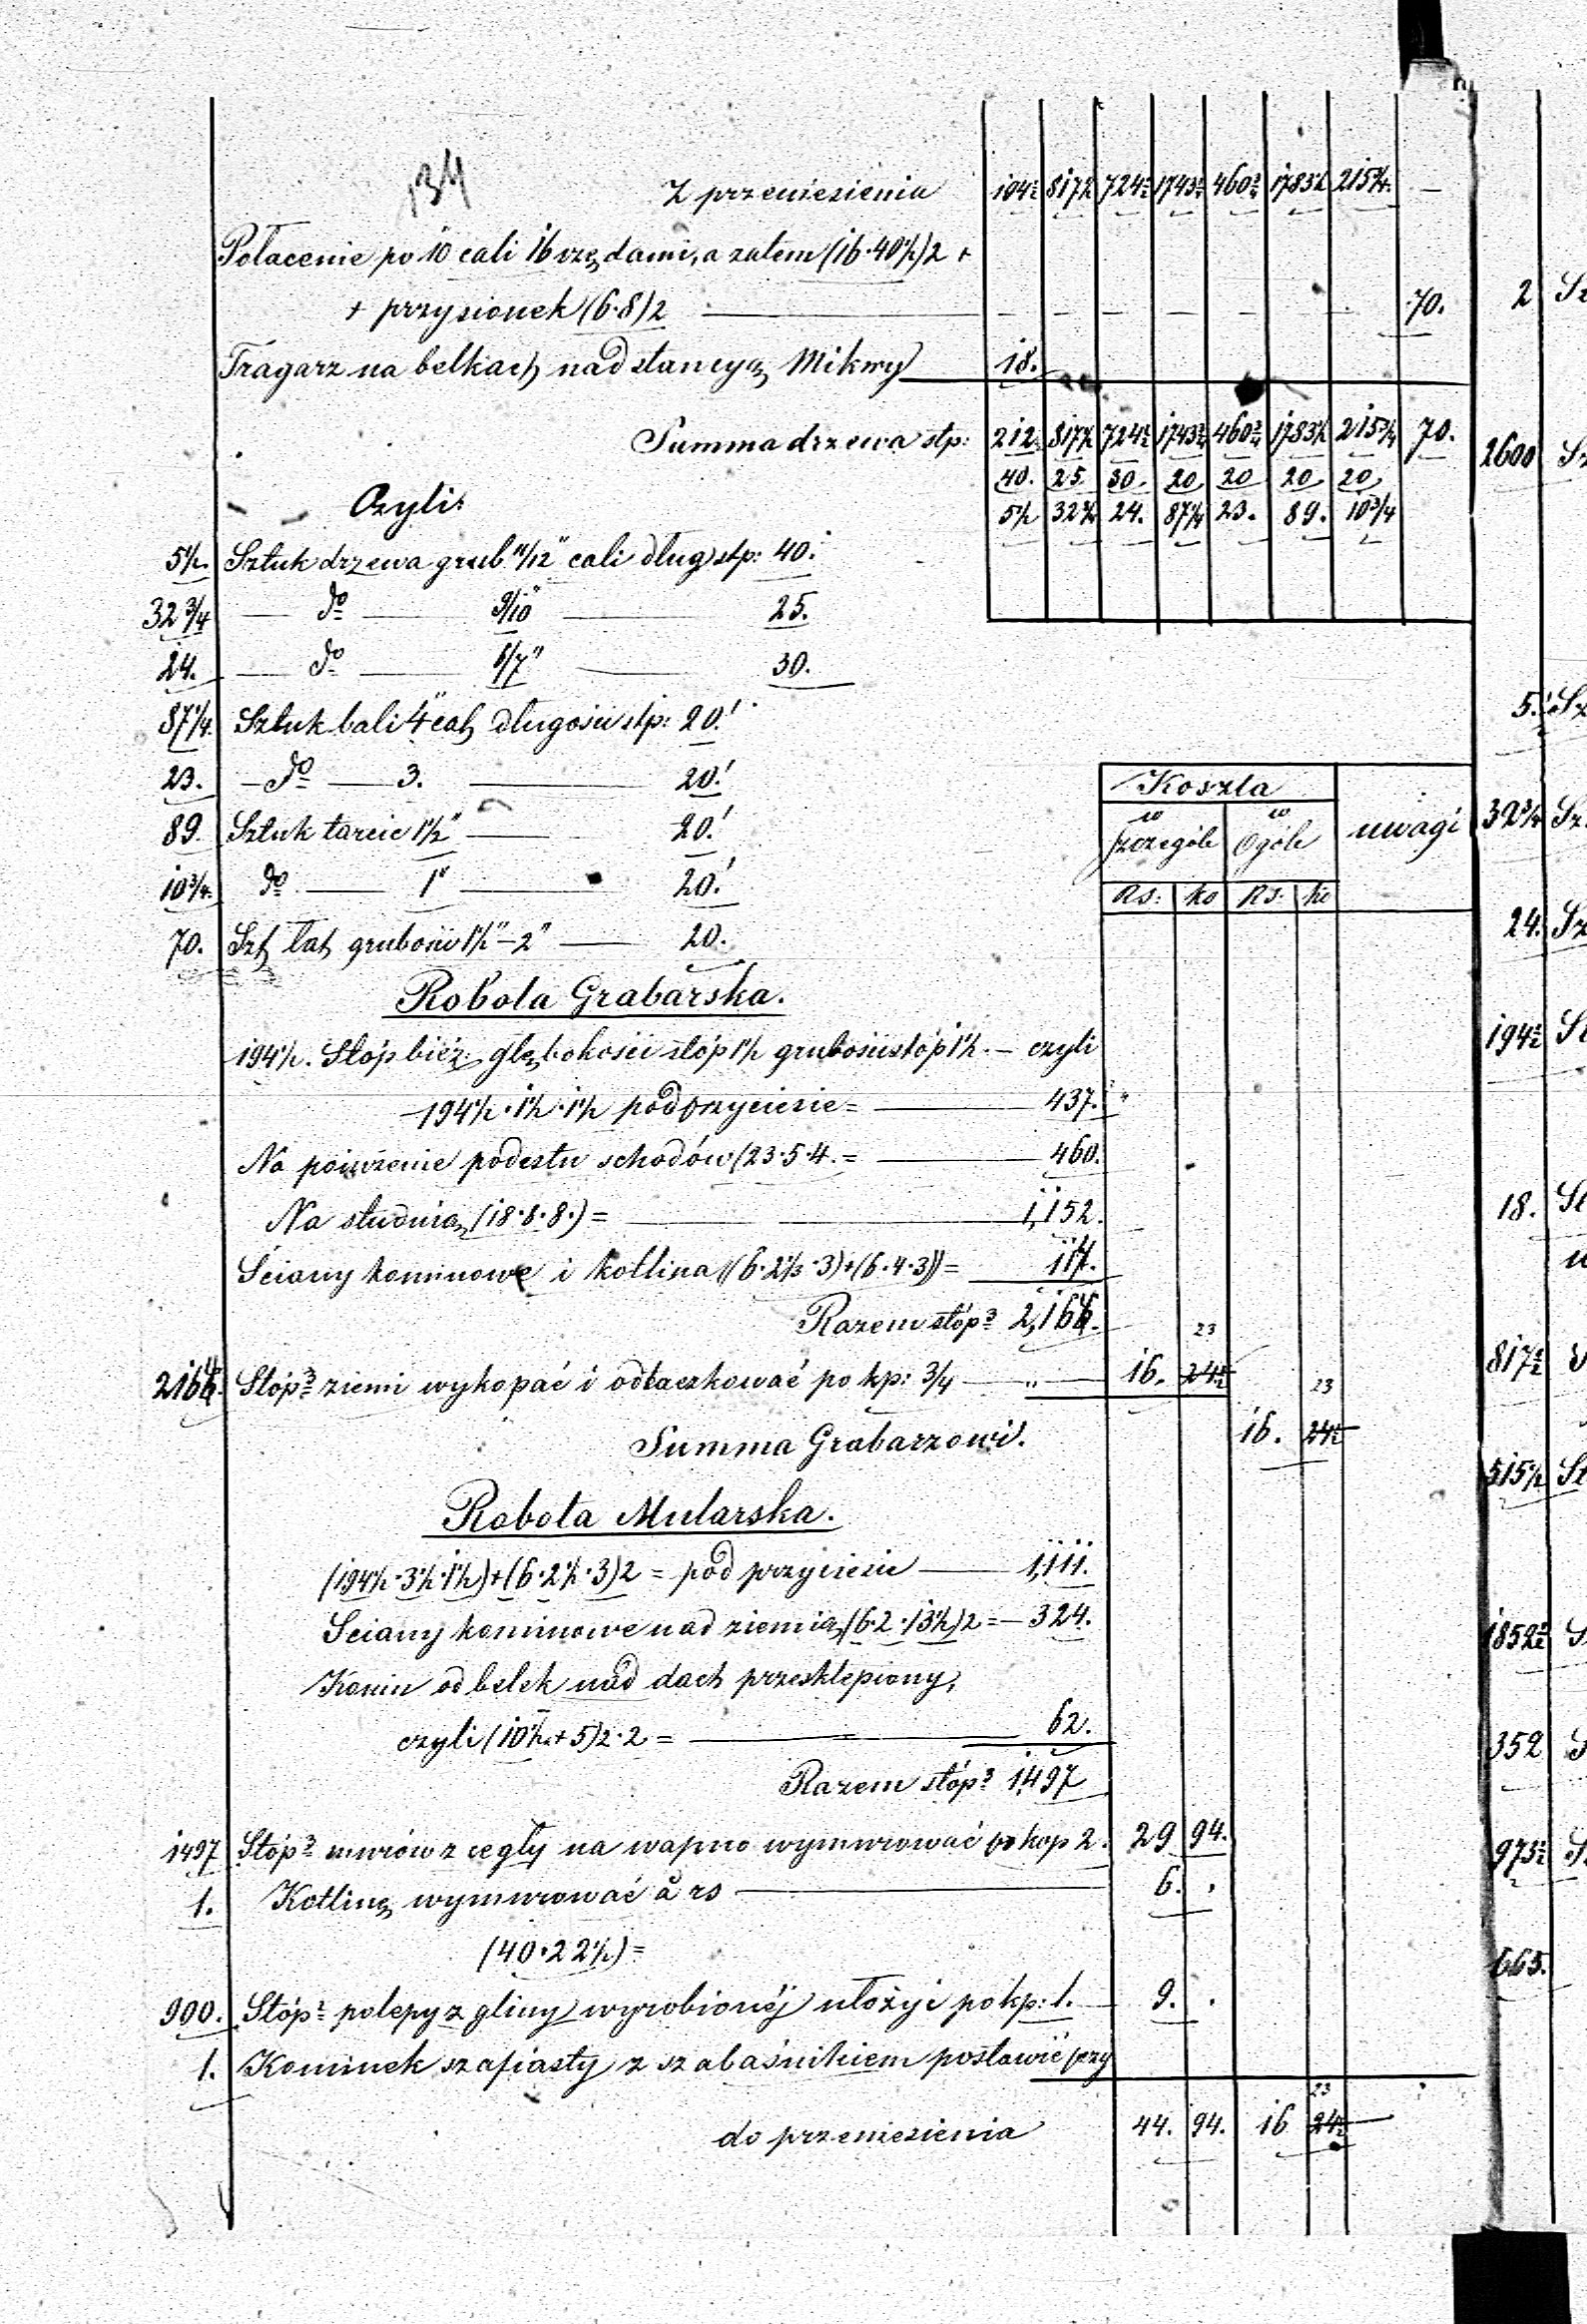 134
Z przeniesienia 194½ 817½ 724½ 1743¾ 460¾ 1783½ 215¾ —
Połacenie po 10 cali 16 rzędami, a zatem (16·40½)2 +
+ przysionek (6·8)2 — — — — — — — 70.
Tragarz na belkach nad stancyą Mikwy 18.
Summa drzewa stp: 212. 817½ 724½ 1743¾ 460¾ 1783½ 215¾ 70.
40. 25. 30. 20 20 20 20
Czyli: 5½ 32¾ 24. 87¼ 23. 89. 10¾
5½. Sztuk drzewa grub. 11/12" cali dług stp: 40.
32¾ — do — 9/10" — 25.
24. — do — 6/7" — 30.
87¼. Sztuk bali 4" cali długości stp: 20.'
23. — do — 3. — 20.'
89. Sztuk tarcic 1½" — 20.'
10¾. do — 1" — 20.'
70. Szt łat grubości 1½"–2" — 20.
Koszta
w szczególe w Ogóle uwagi
Rs: ko Rs: ko
Robota Grabarska.
194½. Stóp bież. głębokości stóp 1½ grubości stóp 1½. — czyli
194½·1½·1½ pod przyciesie = — 437.
Na poniżenie podestu schodów (23·5·4. = — 460.
Na studnią (18·8·8.) = — 1,152.
Ściany kominowe i kotlina ((6·2½·3)+(6·4·3)) = 117.
Razem stóp3 2,166. 23
2166. Stóp3 ziemi wykopać i odtaczkować po kp: 3/4 — " — 16. 24½ 23
Summa Grabarzowi. 16. 24½
Robota Mularska.
(194½·3½·1½)+(6·2½·3)2 = pod przyciesie — 1,111.
Sciany kominowe nad ziemią (6·2·13½)2 = — 324.
Komin od belek nad dach przesklepiony,
czyli (10½+5)2·2 = — 62.
Razem stóp3 1,497
1497 Stóp3 murów z cegły na wapno wymurować po kop 2. 29 94.
1. Kotlinę wymurować à rs — 6. .
(40·22½) =
900. Stóp2 polepy z gliny wyrobionéj ułożyć po kp: 1. — 9. .
1. Kominek szafiasty z szabaśnikiem postawić przy
23
do przeniesienia 44. 94. 16 24½
2
2600
5.
32¾
24.
194½
18.
817½
515½
1852½
352
973½
663.